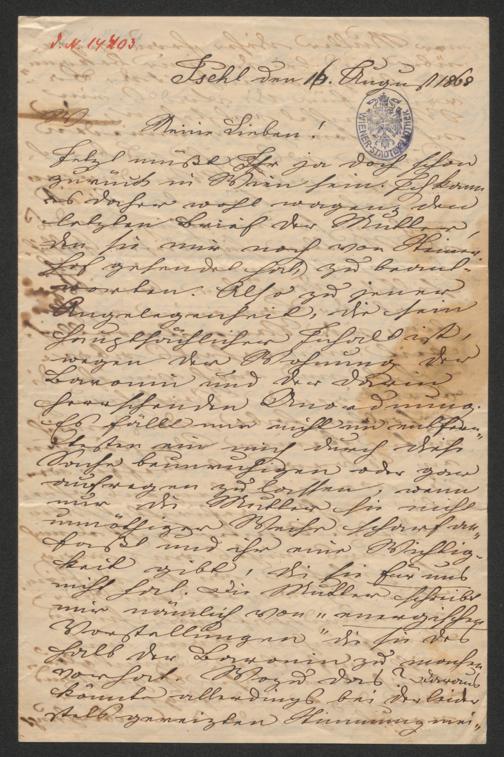 J. N. 14703.
Ischl den 16. August 1868
WIENER-STADTBIBLIOTHEK
Meine Lieben!
Jetzt müßt Ihr ja doch schon
zurück in Wien sein. Ich kann
es daher wohl wagen, den
letzten Brief der Mutter,
den sie mir noch von
hof gesendet hat, zu beant-
worten. Also zu jener
Angelegenheit, die sein
hauptsächlicher Inhalt ist,
wegen der Wohnung der
Baronin und der darin
herrschenden Anordnung.
Es fällt mir nicht im entfern-
testen ein mich durch diese
Sache beunruhigen oder gar
aufregen zu lassen, wenn
nur die Mutter sie nicht
unnöthiger Weise scharf an-
faßt und ihr eine Wichtig-
keit gibt, die sie für uns
nicht hat. Die Mutter schreibt
mir nämlich von "energischen
Vorstellungen" die sie des-
halb der Baronin zu machen
vorhat. Wozu das? Daraus
könnte allerdings bei der leider
stets gereizten Stimmung mei-